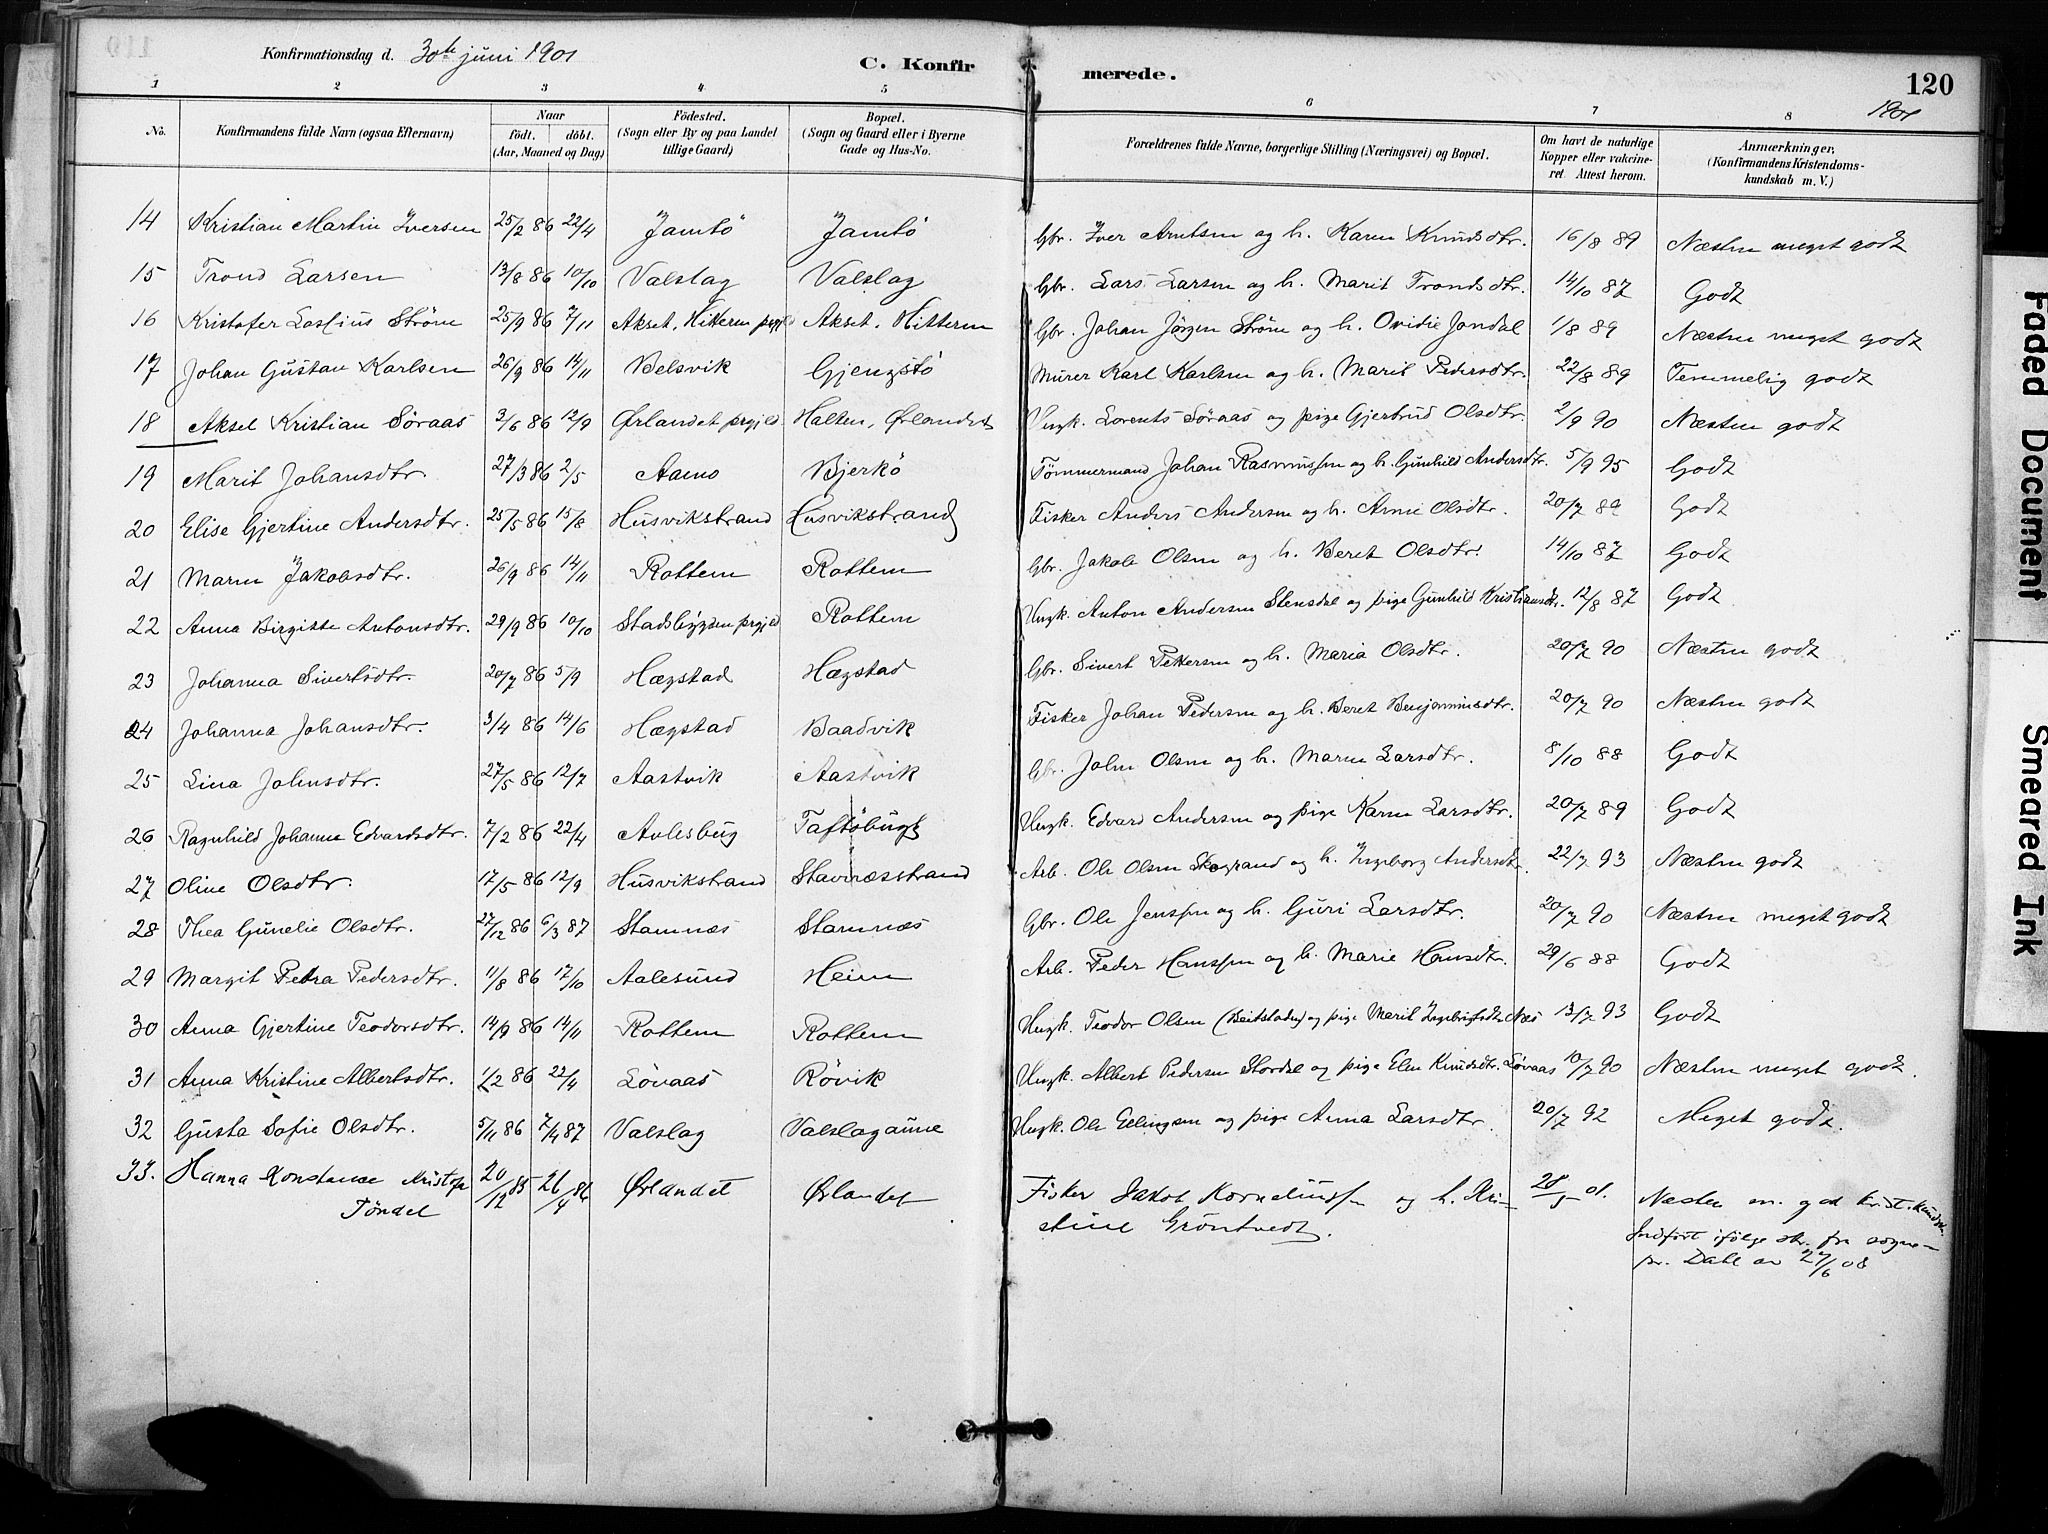 Konfirmationsdag d. 30te juni 1901
C. Konfirmerede.
120
1901
1 2 3 4 5 6 7 8
No. Konfirmandens fulde Navn (ogsaa Efternavn) Naar født. døbt. (Aar, Maaned og Dag) Fødested. (Sogn eller By og paa Landet tillige Gaard) Bopæl. (Sogn og Gaard eller i Byerne Gade og Hus-No. Forældrenes fulde Navne, borgerlige Stilling (Næringsvei) og Bopæl. Om havt de naturlige Kopper eller vakcineret. Attest herom. Anmærkninger, (Konfirmandens Kristendomskundskab m. V.)
14 Kristian Martin Iversen 25/2 86 22/4 Jamtö Jamtö Gbr. Iver Arntsen og h. Karen Knudsdtr. 16/8 89 Næsten meget godt
15 Trond Larsen 13/8 86 10/10 Valslag Valslag Gbr. Lars Larsen og h. Marit Trondsdtr. 14/10 87 Godt
16 Kristofer Strøm 25/9 86 7/11 Akset, Hitteren prgjld Akset, Hitteren Gbr. Johan Jörgen Strøm og h. Ovidie Jondal 1/8 89 Næsten meget godt
17 Johan Gustav Karlsen 26/9 86 14/11 Belsvik Gjengstö Murer Karl Karlsen og h. Marit Pedersdtr. 22/8 89 Temmelig godt
18 Aksel Kristian Söraas 3/6 86 12/9 Ørlandet prgjld Halten, Ørlandet Ungk. Lorents Söraas og pige Gjertrud Olsdtr. 2/9 90 Næsten godt
19 Marit Johansdtr. 27/3 86 2/5 Aamo Bjerkö Tömmermand Johan Rasmussen og h. Gunhild Andersdtr. 5/9 95 Godt
20 Elise Gjertine Andersdtr. 25/5 86 15/8 Husvikstrand Husvikstrand Fisker Anders Andersen og h. Arne Olsdtr. 20/7 89 Godt
21 Maren Jakobsdtr. 26/9 86 14/11 Rottem Rottem Gbr. Jakob Olsen og h. Beret Olsdtr. 14/10 87 Godt
22 Anna Birgitte Antonsdtr. 29/9 86 10/10 Stadsbygden prgjld Rottem Ungk. Anton Andersen Stensdal og pige Gunhild Kristiansdtr. 12/8 87 Godt
23 Johanna Sivertsdtr. 20/7 86 5/9 Hægstad Hægstad Gbr. Sivert Pettersen og h. Maria Olsdtr. 20/7 90 Næsten godt
24 Johanna Johansdtr. 3/4 86 14/6 Hægstad Baadvik Fisker Johan Pedersen og h. Beret Benjaminsdtr. 20/7 90 Næsten godt
25 Lina Johnsdtr. 27/5 86 12/7 Aastvik Aastvik Gbr. John Olsen og h. Maren Larsdtr. 8/10 88 Godt
26 Ragnhild Johanne Edvardsdtr. 7/2 86 22/4 Avlesbug Taftöbugt Ungk. Edvard Andersen og pige Karen Larsdtr. 20/7 89 Godt
27 Oline Olsdtr. 17/5 86 12/9 Husvikstrand Stavnæsstrand Arb. Ole Olsen Skogrand og h. Ingeborg Andersdtr. 22/7 93 Næsten godt
28 Thea Gunelie Olsdtr. 27/12 86 6/3 87 Stamnæs Stamnæs Gbr. Ole Jenssen og h. Guri Larsdtr. 20/7 90 Næsten meget godt
29 Margit Petra Pedersdtr. 11/8 86 17/10 Aalesund Heim Arb. Peder Hanssen og h. Marie Hansdtr. 29/6 88 Godt
30 Anna Gjertine Teodorsdtr. 14/9 86 14/11 Rottem Rottem Ungk. Teodor Olsen (Beitstaden) og pige Marit Ingebrigtsdtr. Næs 13/7 93 Godt
31 Anna Kristine Albertsdtr. 1/2 86 22/4 Lövaas Rövik Ungk. Albert Pedersen Stordal og pige Elen Knudsdtr. Lövaas 10/7 90 Næsten meget godt.
32 Gusta Sofie Olsdtr. 5/11 86 7/4 87 Valslag Valslagaune Ungk. Ole Ellingsen og pige Anna Larsdtr. 20/7 92 Meget godt.
33. Hanna Konstanse Kristofa Töndel 20/12 85 26/4 86 Ørlandet Ørlandet Fisker Jakob Korneliussen og h. Kristine Gröntvedt. 28/5 01. Næsten m. god krist. kundsk.
Indfört ifölge skr. fra sognepr. Dahl av 27/6 08
Faded Document Smeared Ink